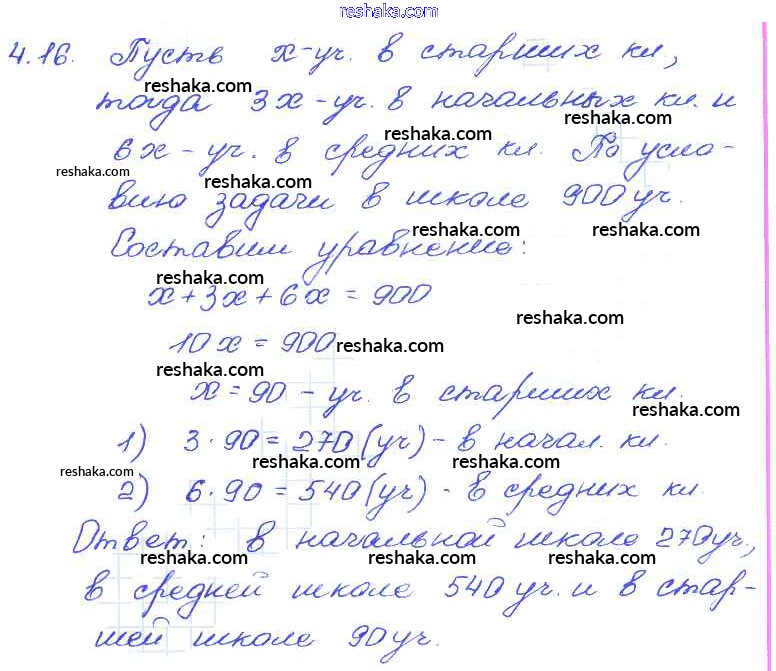 reshaka.com
4.16. Пусть x-уч. в старших кл.,
reshaka.com
тогда 3x-уч. в начальных кл. и
reshaka.com reshaka.com
6x - уч. в средних кл. По усло-
reshaka.com reshaka.com
вию задачи в школе 900 уч.
reshaka.com reshaka.com
Составим уравнение:
reshaka.com
x+3x+6x = 900
reshaka.com
10x = 900 reshaka.com
reshaka.com
x = 90 - уч. в старших кл.
reshaka.com
1) 3·90 = 270 (уч) - в начал. кл.
reshaka.com reshaka.com reshaka.com
2) 6·90 = 540 (уч) - в средних кл.
Ответ: в начальной школе 270 уч.,
reshaka.com reshaka.com reshaka.com
в средней школе 540 уч. и в стар-
шей школе 90 уч.